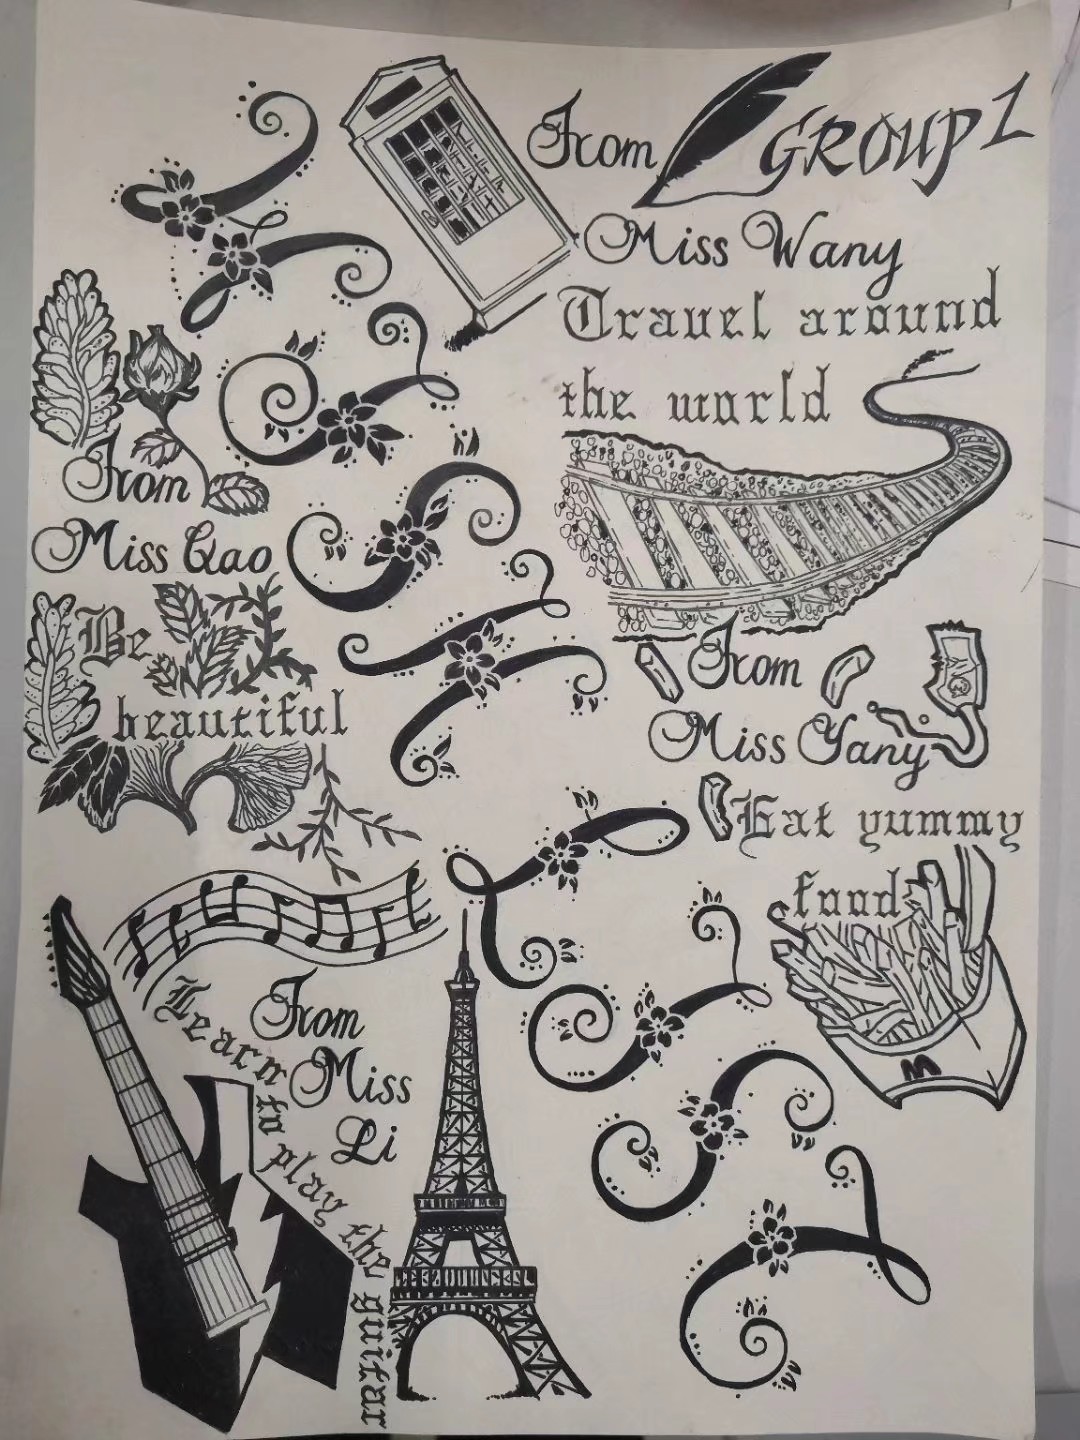 From GROUP 1
Miss Wany
Travel around
the world
From
Miss Qao
Be
beautiful
From
Miss Yany
Eat yummy
food
M
From
Miss
Li
Learn to play the guitar